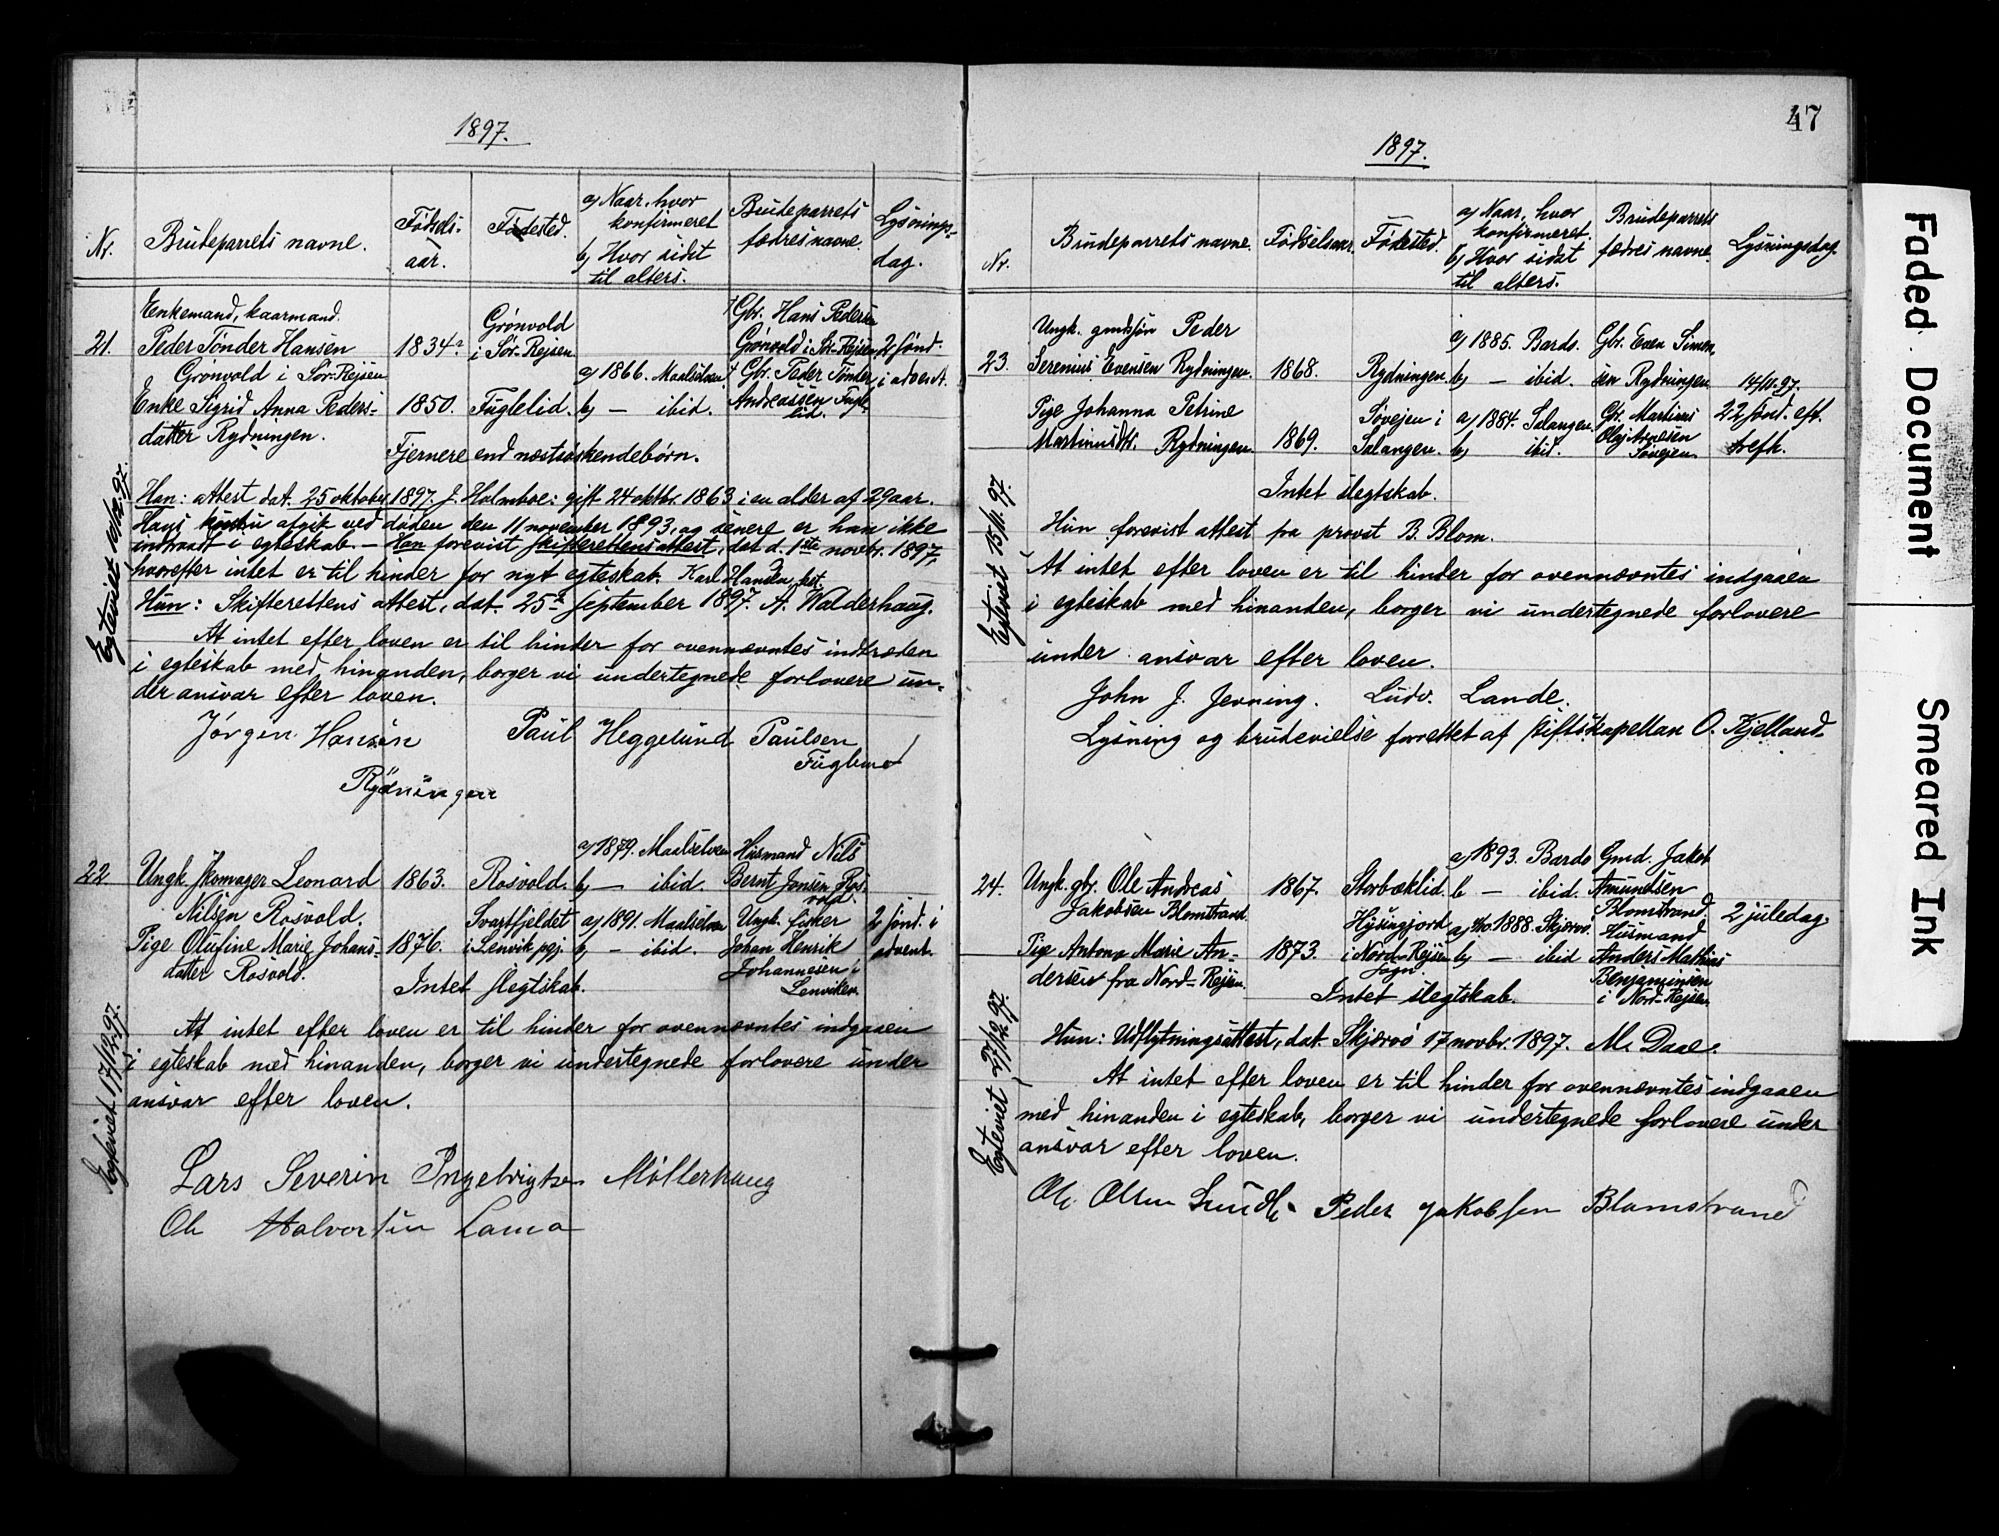 1897.
Nr.
Brudeparrets navne.
Fødsels-
aar.
Fødested.
a) Naar, hvor
konfirmeret
b) Hvor sidst
til alters.
Brudeparrets
fædres navne.
Lysnings-
dag.
21.
Enkemand, kaarmand.
Peder Tønder Hansen
Grønvold i Sør-Rejsen
1834.
Grønvold
i Sør-Rejsen.
Gbr. Hans Pedersen
Grønvold i Sør-Rejsen
2 sønd.
i advent.
Enke Sigrid Anna Peders-
datter Rydningen.
1850.
Fuglelid.
a) 1866. Maalselven
b) — ibid.
Gbr. Peder Tønder
Andreassen Fugle-
lid.
Fjernere end næstsøskendebørn.
Egteviet 10/12 97.
Han: attest dat. 25 oktober 1897. J. Holmboe: gift 24 oktbr. 1863 i en alder af 29 aar.
Hans hustru afgik ved døden den 11 november 1893, og senere er han ikke
indtraadt i egteskab. — Han forevist skifterettens attest, dat. d. 1ste novbr. 1897,
hvorefter intet er til hinder for nyt egteskab. Karl Hansen, fst.
Hun: Skifterettens attest, dat. 25 september 1897. A. Walderhaug.
At intet efter loven er til hinder for ovennævntes indtræden
i egteskab med hinanden, borger vi undertegnede forlovere un-
der ansvar efter loven.
Jørgen Hansen
Rydningen
Paul Heggelund Paulsen
Fuglemo
22
Ungk. skomager Leonard
Nilsen Rosvold.
1863.
Rosvold.
a) 1879. Maalselven
b) — ibid.
Husmand Nils
Bernt Jonsen Ros-
vold.
Pige Olufine Marie Johans-
datter Rosvold.
1876.
Svartfjeldet
i Lenvik pgj.
a) 1891. Maalselven
b) — ibid.
Ungk. fisker
Johan Henrik
Johannesen i
Lenviken
2 sønd. i
advent.
Intet slegtskab.
Egteviet 17/12 97.
At intet efter loven er til hinder for ovennævntes indgaaen
i egteskab med hinanden, borger vi undertegnede forlovere under
ansvar efter loven.
Lars Severin Ingebrigtsen Møllerhaug
Ole Halvorsen Lama
47
1897.
Nr.
Brudeparrets navne.
Fødselsaar.
Fødested.
a) Naar, hvor
konfirmeret.
b) Hvor sidst
til alters.
Brudeparrets
fædres navne.
Lysningsdag.
23.
Ungk. gmdssøn Peder
Serenius Evensen Rydningen.
1868.
Rydningen.
a) 1885. Bardo.
b) — ibid.
Gbr. Even Simon-
sen Rydningen
14/11 97.
22 sønd. eft.
trefh.
Pige Johanna Petrine
Martinusdtr. Rydningen
1869.
Søvejen i
Salangen.
a) 1884. Salangen.
b) ibid.
Gbr. Martinus
Olaj Arnesen
Søvejen.
Intet slegtskab.
Egteviet 15/11 97.
Hun forevist attest fra provst B. Blom.
At intet efter loven er til hinder for ovennævntes indgaaen
i egteskab med hinanden, borger vi undertegnede forlovere
under ansvar efter loven.
John J. Jevning. Ludv. Lande.
Lysning og brudevielse forrettet af stiftskapellan O. Kjelland.
24.
Ungk. gbr. Ole Andreas
Jakobsen Blomstrand
1867.
Storbæklid.
a) 1893. Bardo
b — ibid.
Gmd. Jakob
Amundsen
Blomstrand.
2 juledag.
Pige Antona Marie An-
dersen fra Nord-Rejsen.
1873.
i Nord-Rejsen
sogn.
1888. Skjervø.
b) — ibid
Husmand
Anders Mathias
Benjaminsen
i Nord-Rejsen
Intet slegtskab.
Egteviet 27/12 97.
Hun: Udflytningsattest, dat. Skjervø 17 novbr. 1897. M. Daae.
At intet efter loven er til hinder for ovennævntes indgaaen
med hinanden i egteskab, borger vi undertegnede forlovere under
ansvar efter loven.
Ole Olsen Peder Jakobsen Blomstrand
Faded Document
Smeared Ink